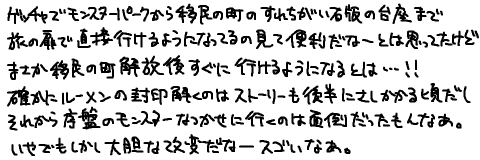 ゲッチャでモンスターパークから移民の町のすれちがい石版の台座まで
旅の扉で直接行けるようになってるの見て便利だなーとは思ってたけど
まさか移民の町解放後すぐに行けるようになるとは…!!
確かにルーメンの封印解くのはストーリーも後半にさしかかる頃だし
それから序盤のモンスターなつかせに行くのは面倒だったもんなあ。
いやでもしかし大胆な改変だなースゴいなあ。